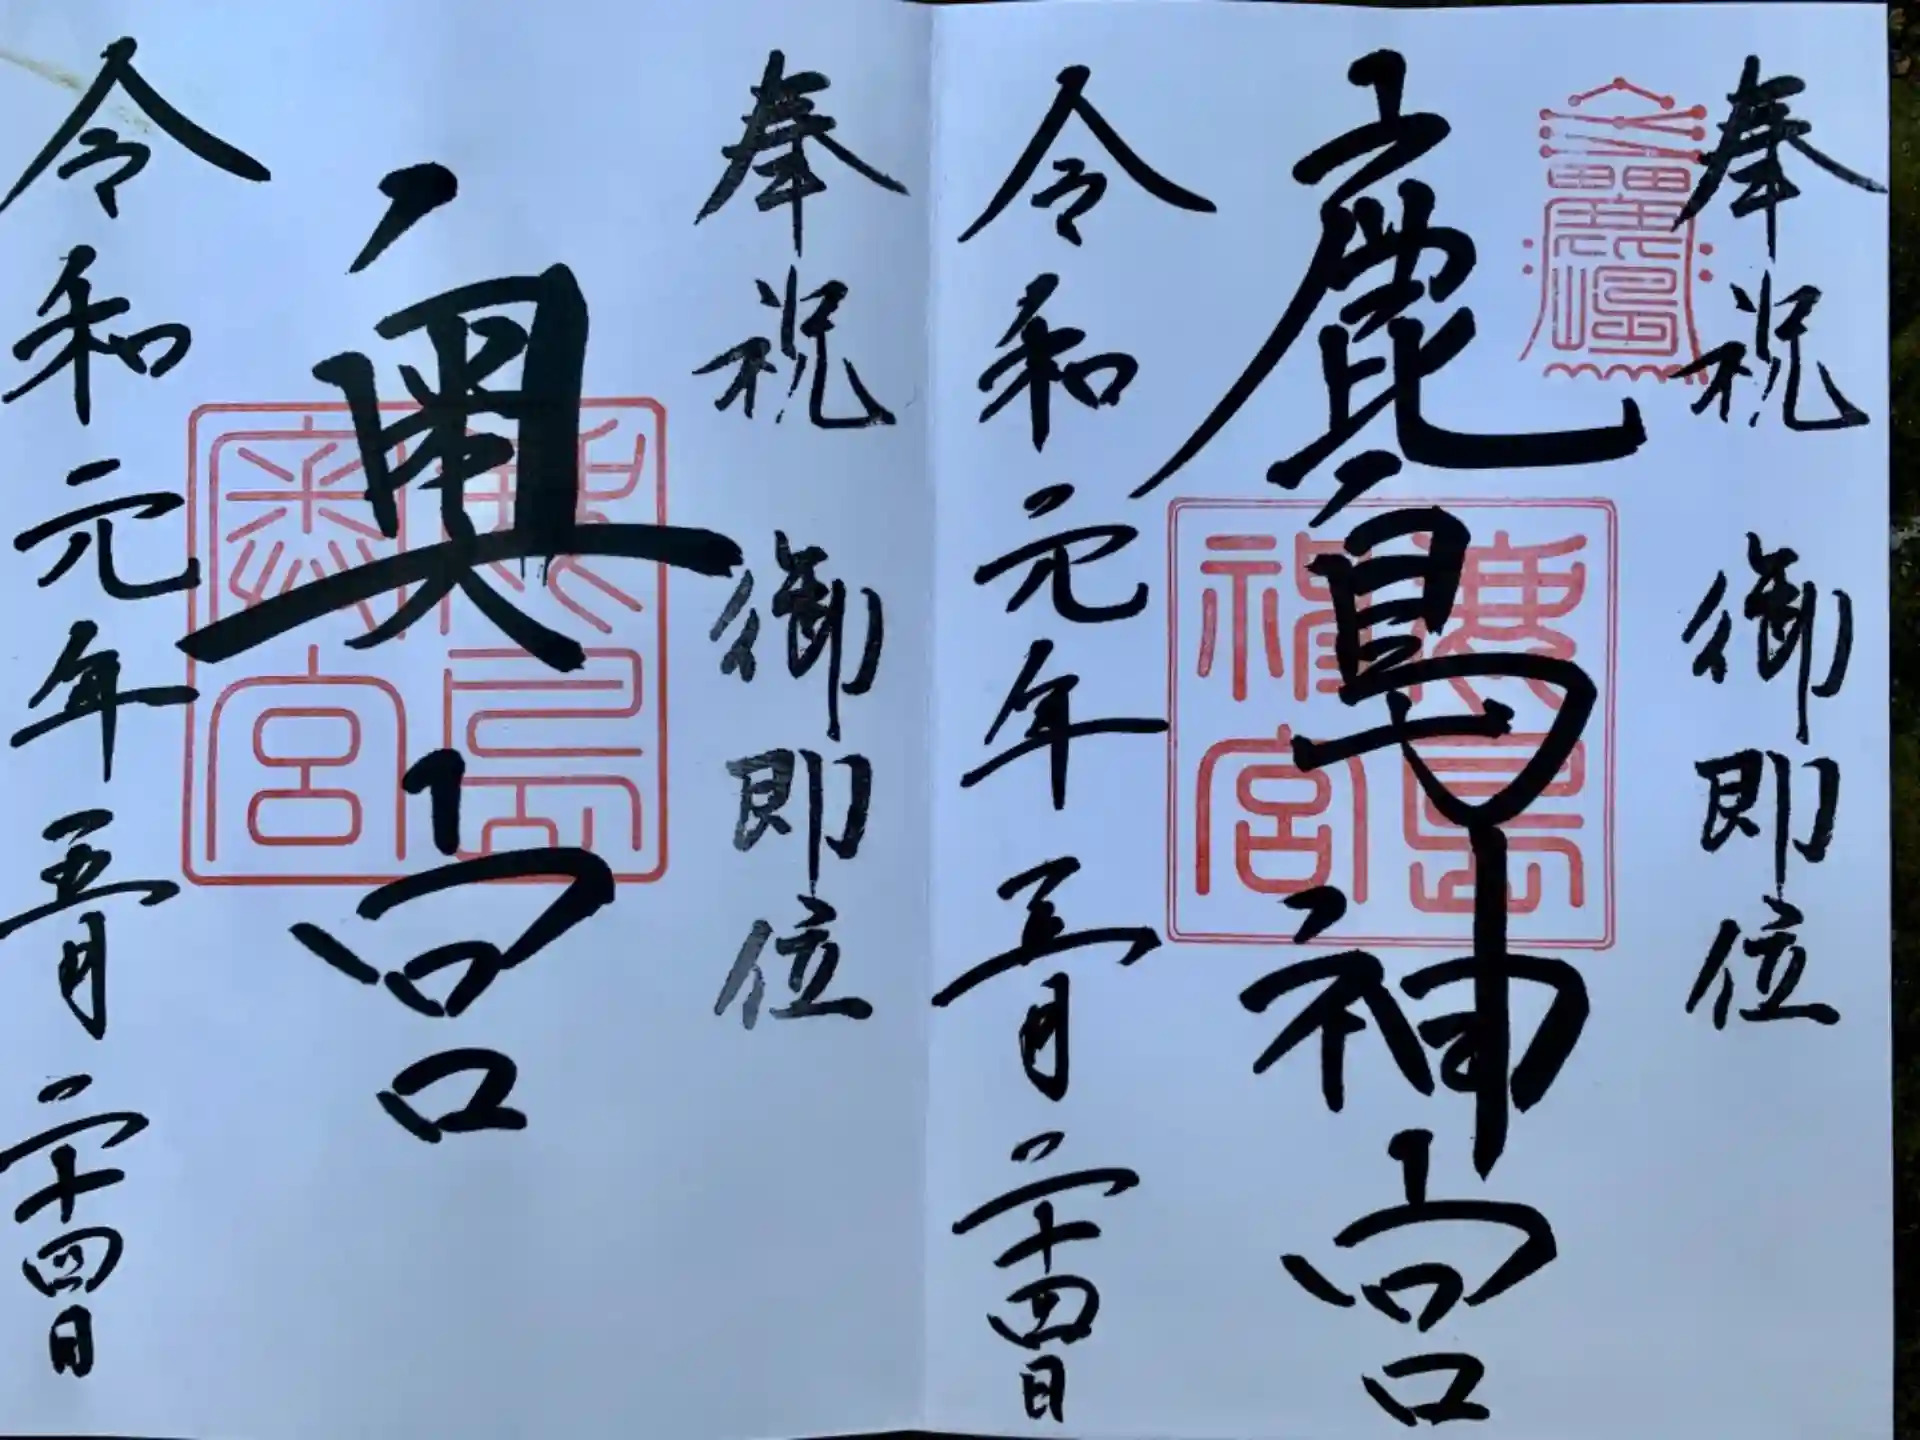 奉祝 御即位
鹿島神宮
令和元年五月二十四日
鹿島
神宮
奉祝 御即位
奥宮
令和元年五月二十四日
鹿島
奥宮